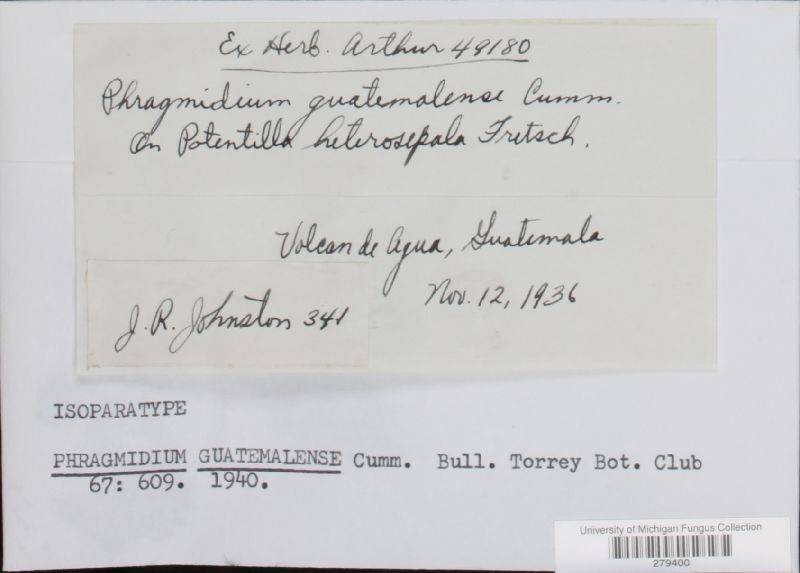 Ex Herb. Arthur 49180
Phragmidium guatemalense Cumm.
On Potentilla heterosepala Fritsch.
Volcan de Agua, Guatemala
Nov. 12, 1936
J. R. Johnston 341
ISOPARATYPE
PHRAGMIDIUM GUATEMALENSE Cumm. Bull. Torrey Bot. Club
67: 609. 1940.
University of Michigan Fungus Collection
279400